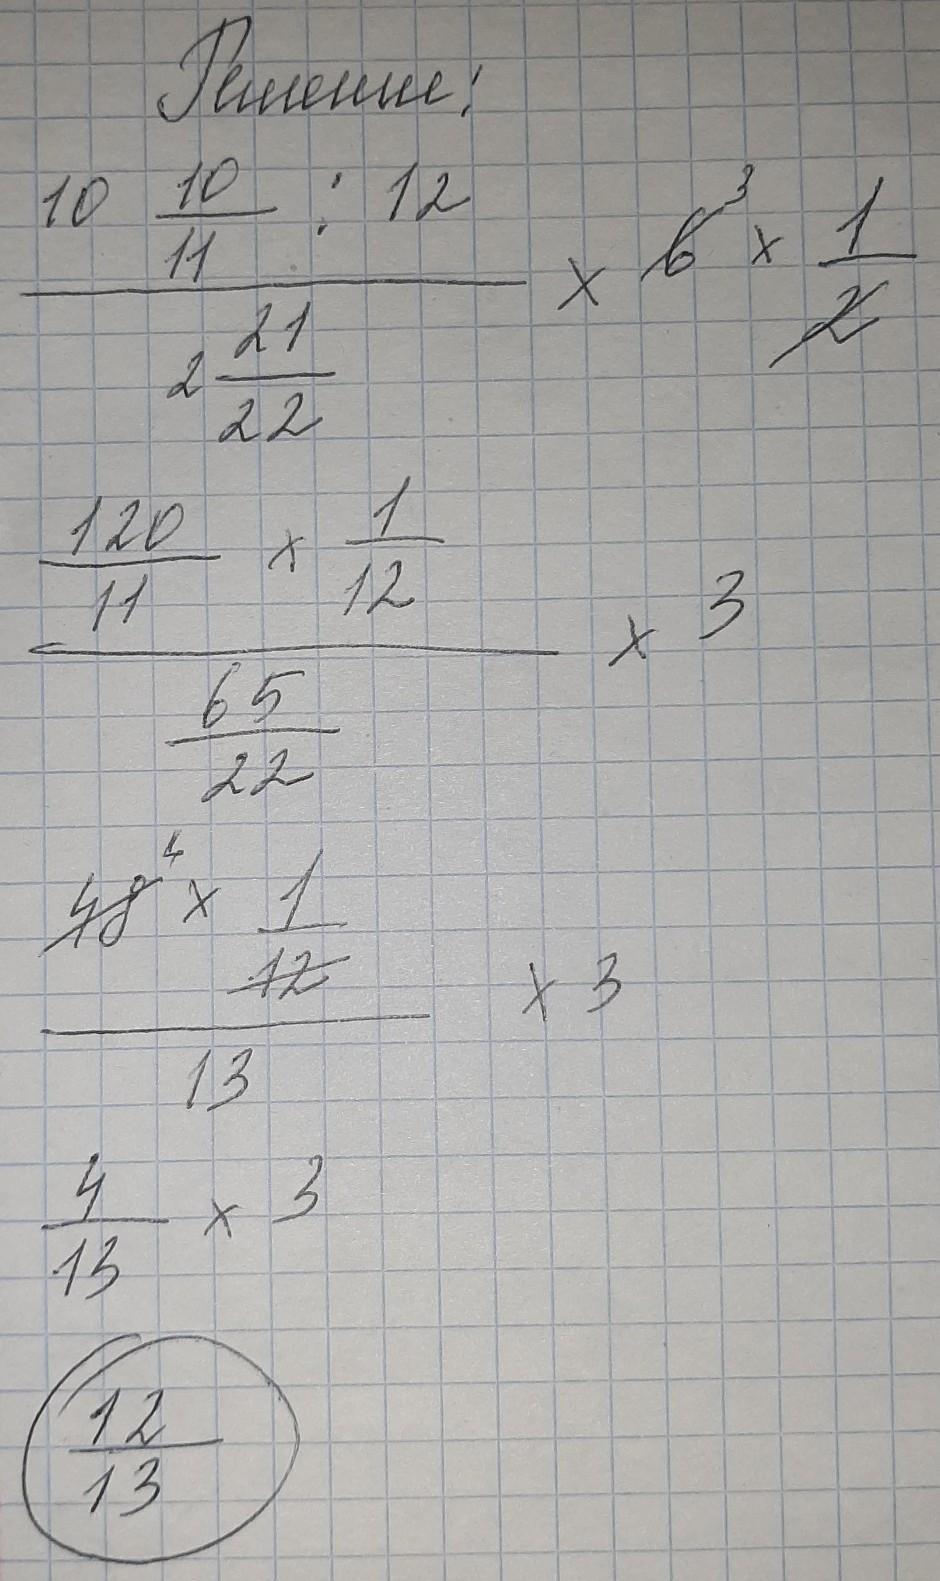 Решение:
10 10/11 : 12
2 21/22
× 6 3 × 1/2
120/11 × 1/12
65/22
× 3
48 4 × 1/12
13
× 3
4/13 × 3
12/13